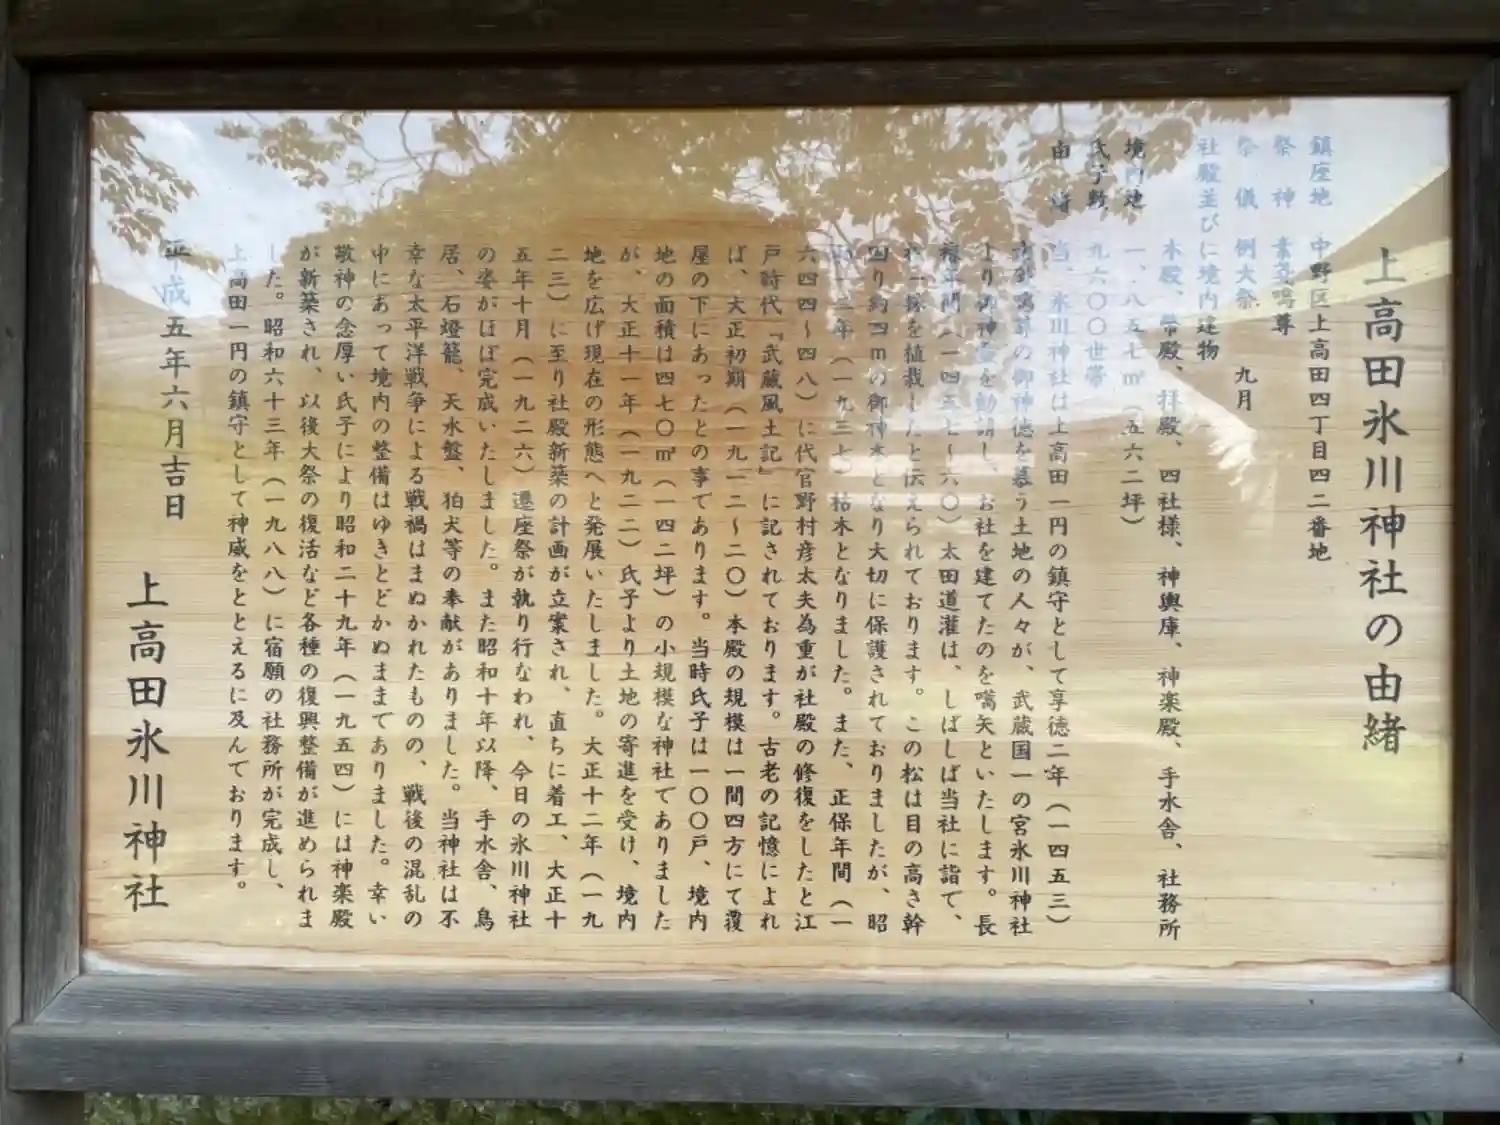 上高田氷川神社の由緒
鎮座地 中野区上高田四丁目四二番地
祭神 素戔嗚尊
祭儀 例大祭 九月
社殿並びに境内建物
本殿、幣殿、拝殿、四社様、神輿庫、神楽殿、手水舎、社務所
境内地 一、八五七㎡(五六二坪)
氏子数 九六〇〇世帯
由緒 当、氷川神社は上高田一円の鎮守として享徳二年(一四五三)
素戔嗚尊の御神徳を慕う土地の人々が、武蔵国一の宮氷川神社
より御神霊を勧請し、お社を建てたのを嚆矢といたします。長
禄年間(一四五七〜六〇)太田道灌は、しばしば当社に詣て、
松一株を植栽したと伝えられております。この松は目の高さ幹
回り約四mの御神木となり大切に保護されておりましたが、昭
和十二年(一九三七)枯木となりました。また、正保年間(一
六四四〜四八)に代官野村彦太夫為重が社殿の修復をしたと江
戸時代『武蔵風土記』に記されております。古老の記憶によれ
ば、大正初期(一九一二〜二〇)本殿の規模は一間四方にて覆
屋の下にあったとの事であります。当時氏子は一〇〇戸、境内
地の面積は四七〇㎡(一四二坪)の小規模な神社でありました
が、大正十一年(一九二二)氏子より土地の寄進を受け、境内
地を広げ現在の形態へと発展いたしました。大正十二年(一九
二三)に至り社殿新築の計画が立案され、直ちに着工、大正十
五年十月(一九二六)遷座祭が執り行なわれ、今日の氷川神社
の姿がほぼ完成いたしました。また昭和十年以降、手水舎、鳥
居、石燈籠、天水盤、狛犬等の奉献がありました。当神社は不
幸な太平洋戦争による戦禍はまぬかれたものの、戦後の混乱の
中にあって境内の整備はゆきとどかぬままでありました。幸い
敬神の念厚い氏子により昭和二十九年(一九五四)には神楽殿
が新築され、以後大祭の復活など各種の復興整備が進められま
した。昭和六十三年(一九八八)に宿願の社務所が完成し、
上高田一円の鎮守として神威をととえるに及んでおります。
平成五年六月吉日
上高田氷川神社